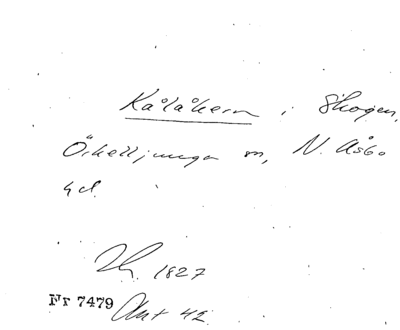 Kålåkern i Skogen,
Örkelljunga sn, N. Åsbo
hd.
1827
Nr 7479 Akt 42